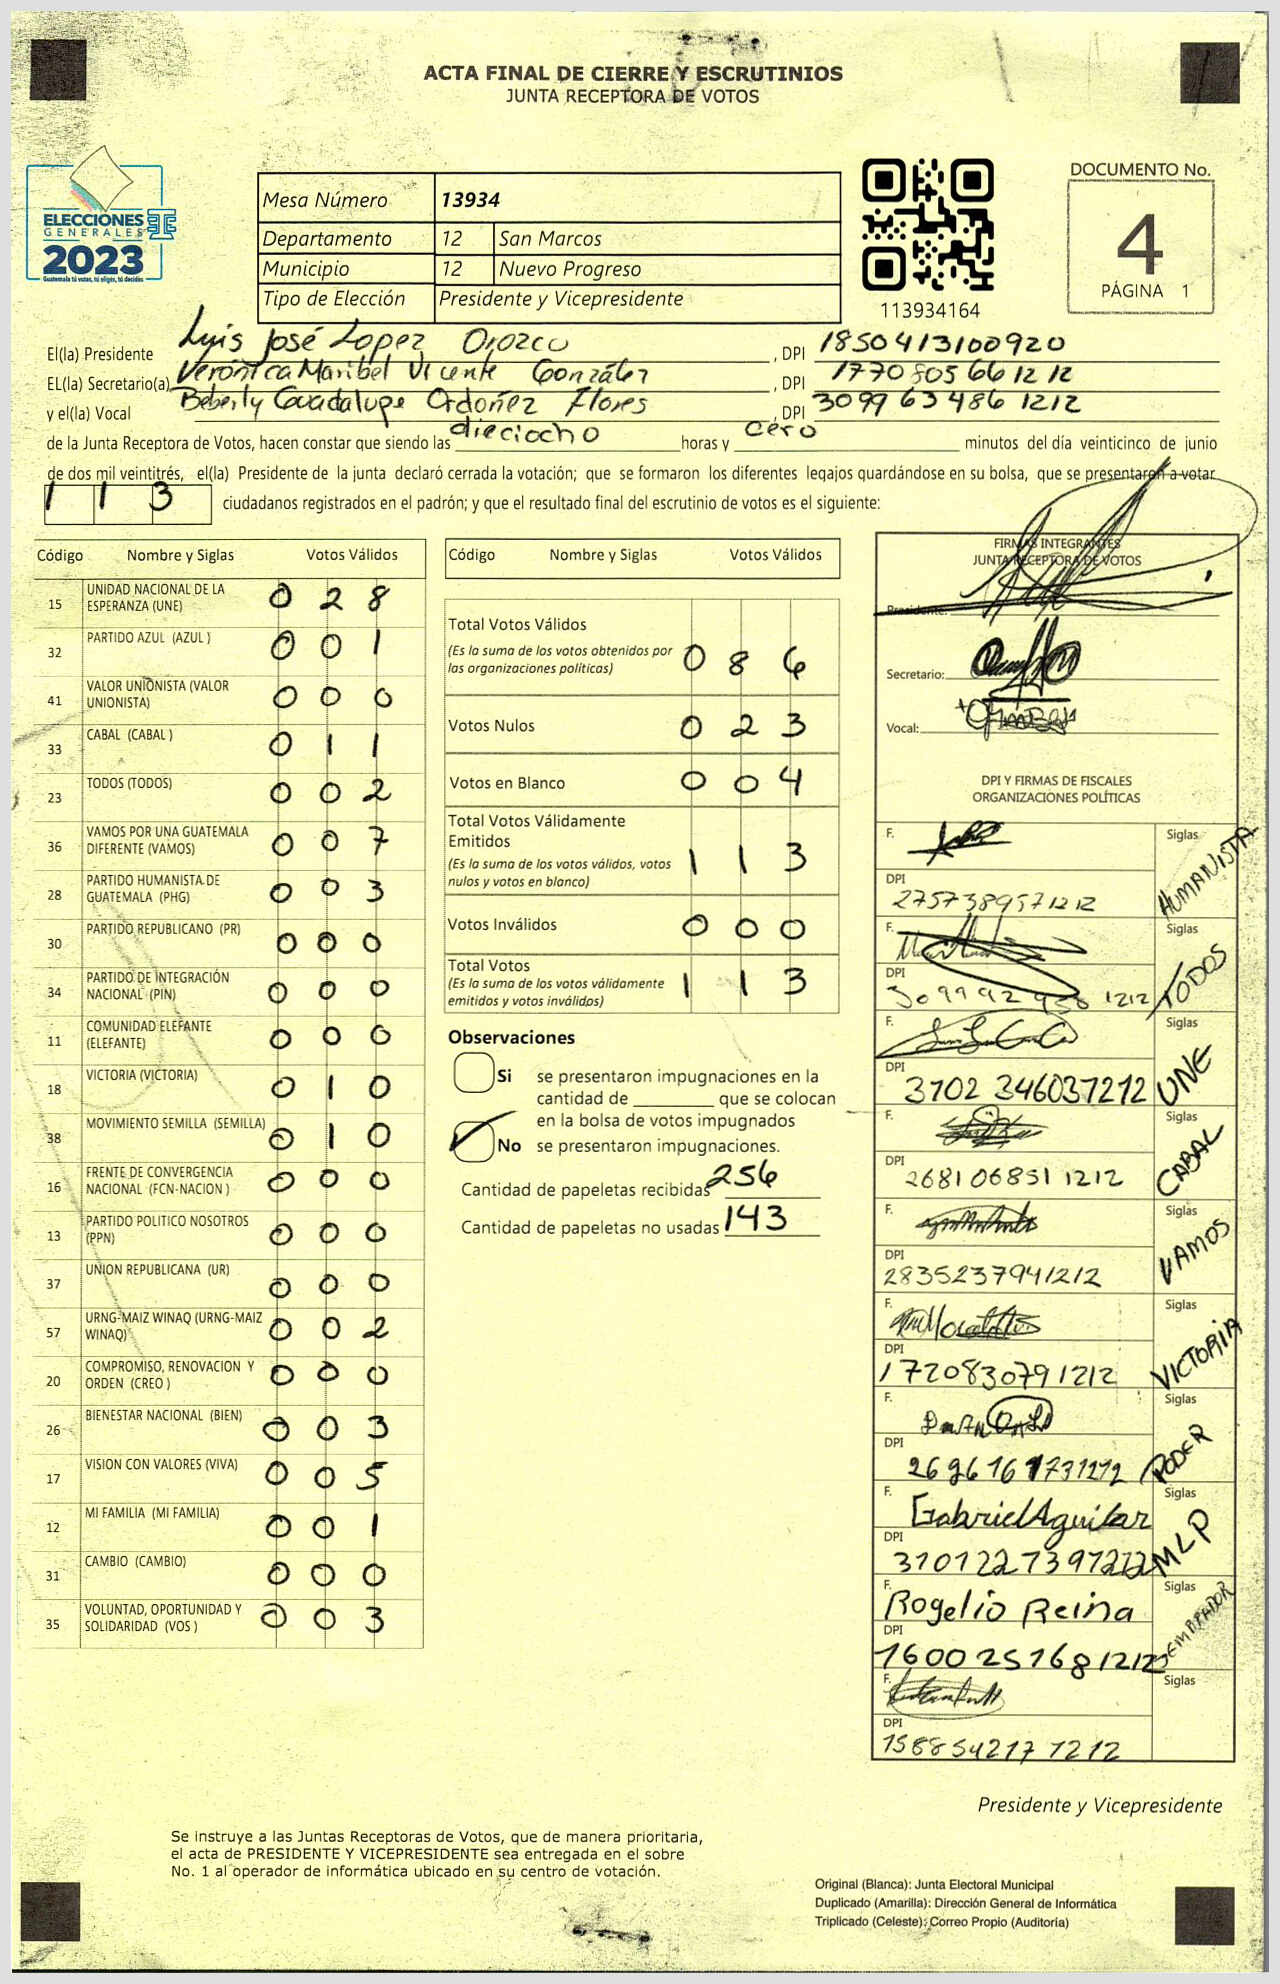 ACTA FINAL DE CIERRE Y ESCRUTINIOS
JUNTA RECEPTORA DE VOTOS
ELECCIONES
GENERALES
2023
Guatemala tú votas, tú eliges, tú decides
Mesa Número 13934
Departamento 12 San Marcos
Municipio 12 Nuevo Progreso
Tipo de Elección Presidente y Vicepresidente
113934164
DOCUMENTO No.
4
PÁGINA 1
El(la) Presidente Luis José Lopez Orozco , DPI 1850413100920
EL(la) Secretario(a) Verónica Maribel Vicente González , DPI 1770805661212
y el(la) Vocal Beberly Guadalupe Ordoñez Flores , DPI 3099634861212
de la Junta Receptora de Votos, hacen constar que siendo las dieciocho horas y cero minutos del día veinticinco de junio
de dos mil veintitrés, el(la) Presidente de la junta declaró cerrada la votación; que se formaron los diferentes legajos quardándose en su bolsa, que se presentaron a votar
113 ciudadanos registrados en el padrón; y que el resultado final del escrutinio de votos es el siguiente:
Código Nombre y Siglas Votos Válidos
15 UNIDAD NACIONAL DE LA ESPERANZA (UNE) 0 2 8
32 PARTIDO AZUL (AZUL ) 0 0 1
41 VALOR UNIONISTA (VALOR UNIONISTA) 0 0 0
33 CABAL (CABAL ) 0 1 1
23 TODOS (TODOS) 0 0 2
36 VAMOS POR UNA GUATEMALA DIFERENTE (VAMOS) 0 0 7
28 PARTIDO HUMANISTA DE GUATEMALA (PHG) 0 0 3
30 PARTIDO REPUBLICANO (PR) 0 0 0
34 PARTIDO DE INTEGRACIÓN NACIONAL (PIN) 0 0 0
11 COMUNIDAD ELEFANTE (ELEFANTE) 0 0 0
18 VICTORIA (VICTORIA) 0 1 0
38 MOVIMIENTO SEMILLA (SEMILLA) 0 1 0
16 FRENTE DE CONVERGENCIA NACIONAL (FCN-NACION ) 0 0 0
13 PARTIDO POLITICO NOSOTROS (PPN) 0 0 0
37 UNION REPUBLICANA (UR) 0 0 0
57 URNG-MAIZ WINAQ (URNG-MAIZ WINAQ) 0 0 2
20 COMPROMISO, RENOVACION Y ORDEN (CREO ) 0 0 0
26 BIENESTAR NACIONAL (BIEN) 0 0 3
17 VISION CON VALORES (VIVA) 0 0 5
12 MI FAMILIA (MI FAMILIA) 0 0 1
31 CAMBIO (CAMBIO) 0 0 0
35 VOLUNTAD, OPORTUNIDAD Y SOLIDARIDAD (VOS ) 0 0 3
Código Nombre y Siglas Votos Válidos
Total Votos Válidos
(Es la suma de los votos obtenidos por las organizaciones políticas) 0 8 6
Votos Nulos 0 2 3
Votos en Blanco 0 0 4
Total Votos Válidamente Emitidos
(Es la suma de los votos válidos, votos nulos y votos en blanco) 1 1 3
Votos Inválidos 0 0 0
Total Votos
(Es la suma de los votos válidamente emitidos y votos inválidos) 1 1 3
Observaciones
Si se presentaron impugnaciones en la
cantidad de ________ que se colocan
en la bolsa de votos impugnados
No se presentaron impugnaciones.
Cantidad de papeletas recibidas 256
Cantidad de papeletas no usadas 143
FIRMAS INTEGRANTES
JUNTA RECEPTORA DE VOTOS
Presidente:
Secretario:
Vocal:
DPI Y FIRMAS DE FISCALES
ORGANIZACIONES POLÍTICAS
F. Siglas HUMANISTA
DPI 2757389571212
F. Siglas TODOS
DPI
F. Siglas UNE
DPI 3102 346037212
F. Siglas CABAL
DPI 2681068511212
F. Siglas VAMOS
DPI 2835237941212
F. Siglas VICTORIA
DPI 1720830791212
F. Siglas PODER
DPI
F. Gabriel Aguilar Siglas MLP
DPI
F. Rogelio Reina Siglas SEMBRADOR
DPI 1600251681212
F. Siglas
DPI 1588542171212
Presidente y Vicepresidente
Se instruye a las Juntas Receptoras de Votos, que de manera prioritaria,
el acta de PRESIDENTE Y VICEPRESIDENTE sea entregada en el sobre
No. 1 al operador de informática ubicado en su centro de votación.
Original (Blanca): Junta Electoral Municipal
Duplicado (Amarilla): Dirección General de Informática
Triplicado (Celeste): Correo Propio (Auditoría)